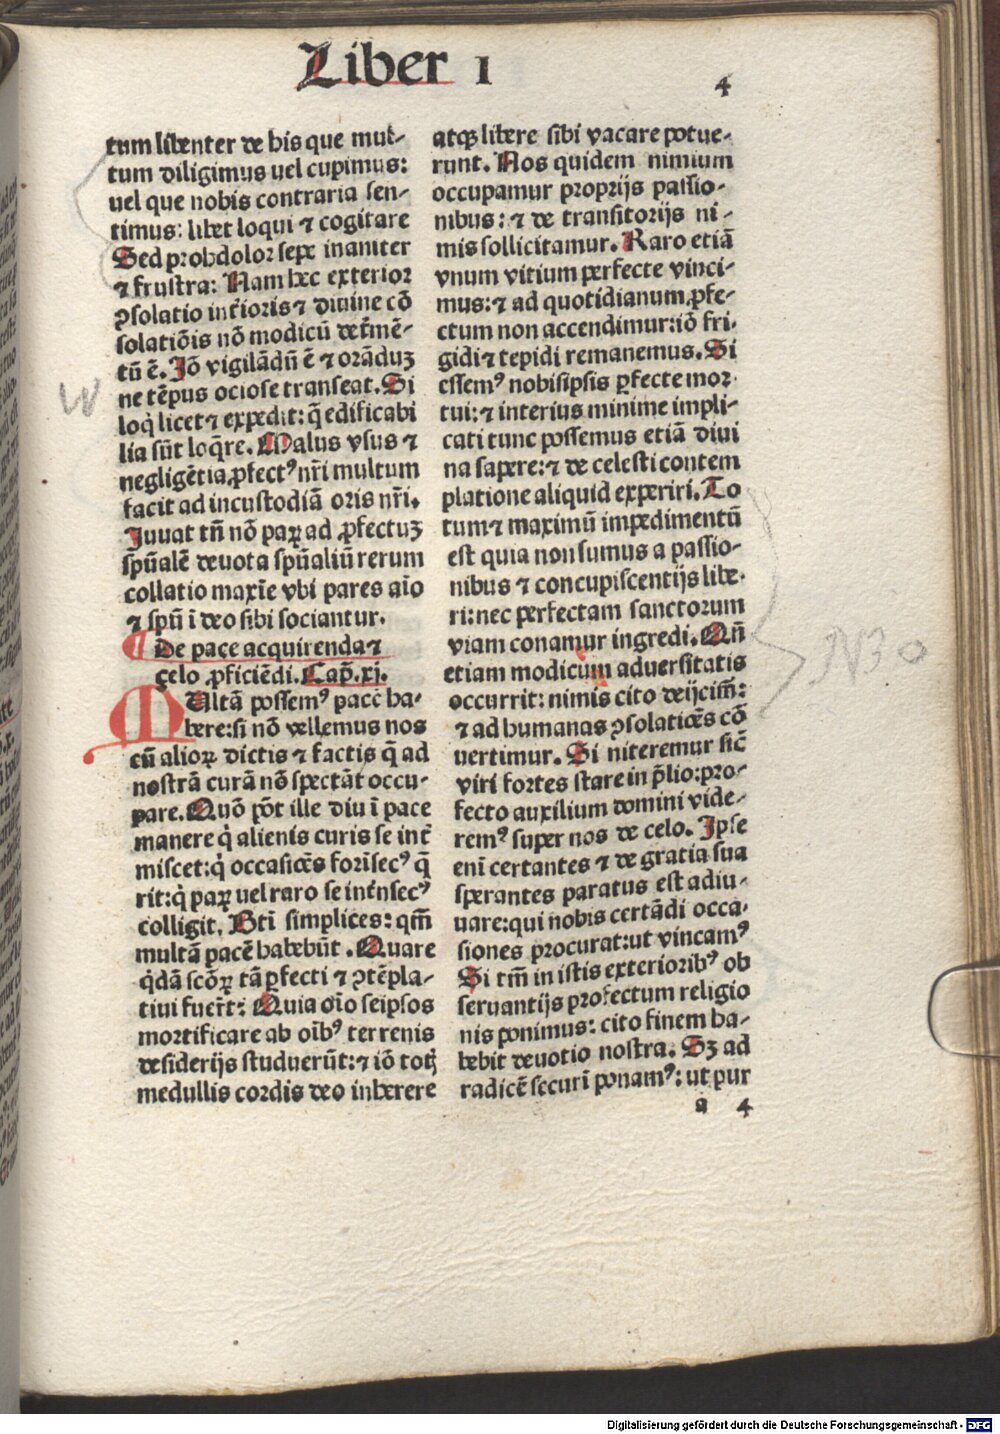 Liber 1
4
tum libenter de his que mul-
tum diligimus uel cupimus:
uel que nobis contraria sen-
timus: libet loqui ⁊ cogitare
Sed prohdolor sepe inaniter
⁊ frustra: Nam hec exterior
ꝯsolatio int̃ioris ⁊ diuine cō
solatiōis nō modicū det̃mē-
tū ē. Iō vigilādū ē ⁊ orāduꝫ
ne tēpus ociose transeat. Si
loq̇ licet ⁊ expedit: q̄ edificabi
lia sūt loq̄re. Malus vsus ⁊
negligētia ꝓfectꝰ nr̄i multum
facit ad incustodiā oris nr̄i.
Iuuat tn̄ nō paꝝ ad ꝓfectuꝫ
spūalē deuota spūaliū rerum
collatio maxīe vbi pares aīo
⁊ spū ī deo sibi sociantur.
¶ De pace acquirenda ⁊
zelo ꝓficiēdi. Cap̄. xj.
MUltā possemꝰ pacē ha-
bere: si nō vellemus nos
cū alioꝝ dictis ⁊ factis q̄ ad
nostrā curā nō spectāt occu-
pare. Quō pōt ille diu ī pace
manere q̇ alienis curis se int̃
miscet: q̇ occasiōes forīsecꝰ q̄
rit: q̇ paꝝ uel raro se int̃nsecꝰ
colligit. Btī simplices: qm̄
multā pacē habebūt. Quare
q̇dā scōꝝ tā ꝑfecti ⁊ ꝯtēpla-
tiui fuer̄t: Quia oīo seipsos
mortificare ab oībꝰ terrenis
desiderijs studuerūt: ⁊ iō totꝭ
medullis cordis deo inherere
atqꝫ libere sibi vacare potue-
runt. Nos quidem nimium
occupamur proprijs passio-
nibus: ⁊ de transitorijs ni-
mis sollicitamur. Raro etiā
vnum vitium perfecte vinci-
mus: ⁊ ad quotidianum ꝓfe-
ctum non accendimur: iō fri-
gidi ⁊ tepidi remanemus. Si
essemꝰ nobisipsis ꝑfecte mor
tui: ⁊ interius minime impli-
cati tunc possemus etiā diui
na sapere: ⁊ de celesti contem
platione aliquid experiri. To
tum ⁊ maximū impedimentū
est quia non sumus a passio-
nibus ⁊ concupiscentijs libe-
ri: nec perfectam sanctorum
viam conamur ingredi. Qn̄
etiam modicum aduersitatis
occurrit: nimis cito deijcim̄:
⁊ ad humanas ꝯsolatiōes cō
uertimur. Si niteremur sic̄
viri fortes stare in p̄lio: pro-
fecto auxilium domini vide-
remꝰ super nos de celo. Ipse
enī certantes ⁊ de gratia sua
sperantes paratus est adiu-
uare: qui nobis certādi occa-
siones procurat: ut vincamꝰ
Si tm̄ in istis exterioribꝰ ob
seruantijs profectum religio
nis ponimus: cito finem ha-
bebit deuotio nostra. Sꝫ ad
radicē securī ponamꝰ: ut pur
a 4
Digitalisierung gefördert durch die Deutsche Forschungsgemeinschaft - DFG